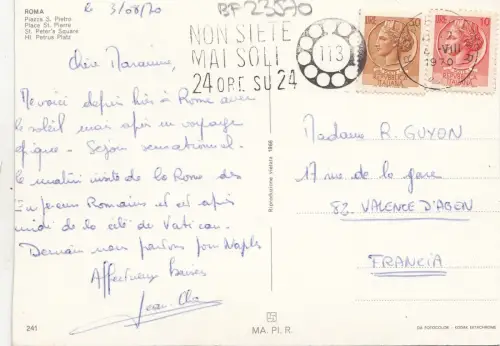 ROMA
Piazza S. Pietro
Place St. Pierre
St. Peter's Square
Hl. Petrus Platz
le 3/08/70
BF 23570
NON SIETE
MAI SOLI
24 ORE SU 24
113
IRE 30
IRE 10
VIII
1970
Chère Marraine,
Me voici depuis hier à Rome avec
le soleil mais après un voyage
épique - Séjour sensationnel.
Le matin visite de la Rome des
Empereurs Romains et cet après
midi de la cité du Vatican.
Demain nous partons pour Naples
Affectueux Baisers
Jean
Madame R. GUYON
17 rue de la gare
82. VALENCE D'AGEN
FRANCIA
Riproduzione vietata 1968
241
MA. PI. R.
DA FOTOCOLOR - KODAK EKTACHROME